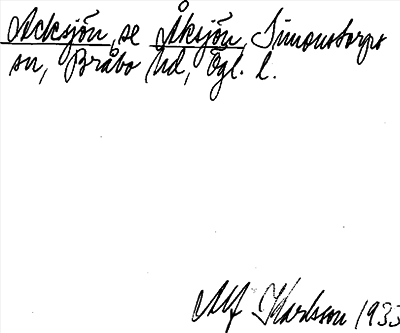 Acksjön, se Åksjön, Simonstorps
sn, Bråbo hd, Ögl. l.
Alf Karlsson 1933